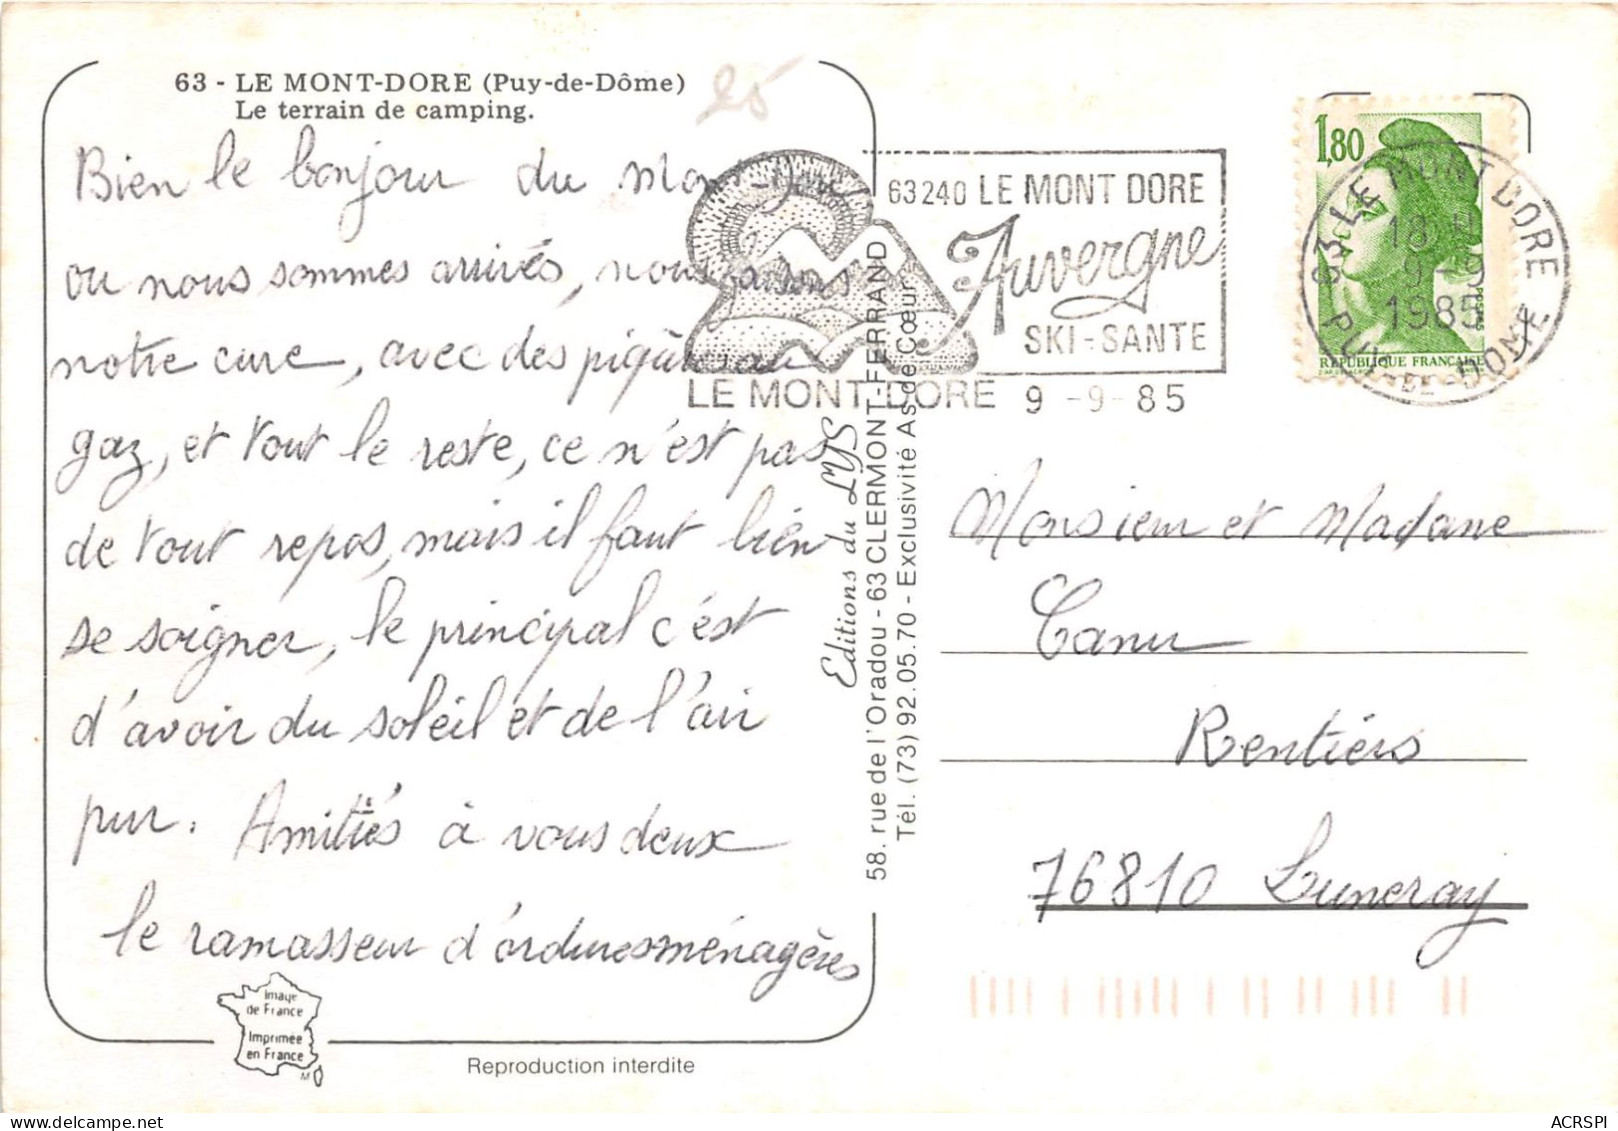 63 - LE MONT-DORE (Puy-de-Dôme)
Le terrain de camping.
25
Bien le bonjour du Mont-Dore
ou nous sommes arrivés, nous faisons
notre cure, avec des piqûres au
gaz, et tout le reste, ce n'est pas
de tout repos, mais il faut bien
se soigner, le principal c'est
d'avoir du soleil et de l'air
pur. Amitiés à vous deux
le ramasseur d'ordures ménagères
Image
de France
Imprimée
en France
Reproduction interdite
Editions du LYS
58. rue de l'Oradou - 63 CLERMONT-FERRAND
Tél. (73) 92.05.70 - Exclusivité As de Cœur
63240 LE MONT DORE
Auvergne
SKI-SANTE
LE MONT-DORE 9-9-85
1,80
POSTES
REPUBLIQUE FRANCAISE
63 LE MONT DORE
18 H
9-9
1985
PUY-DE-DOME
Monsieur et Madame
Canu
Rentiers
76810 Luneray
ACRSPI